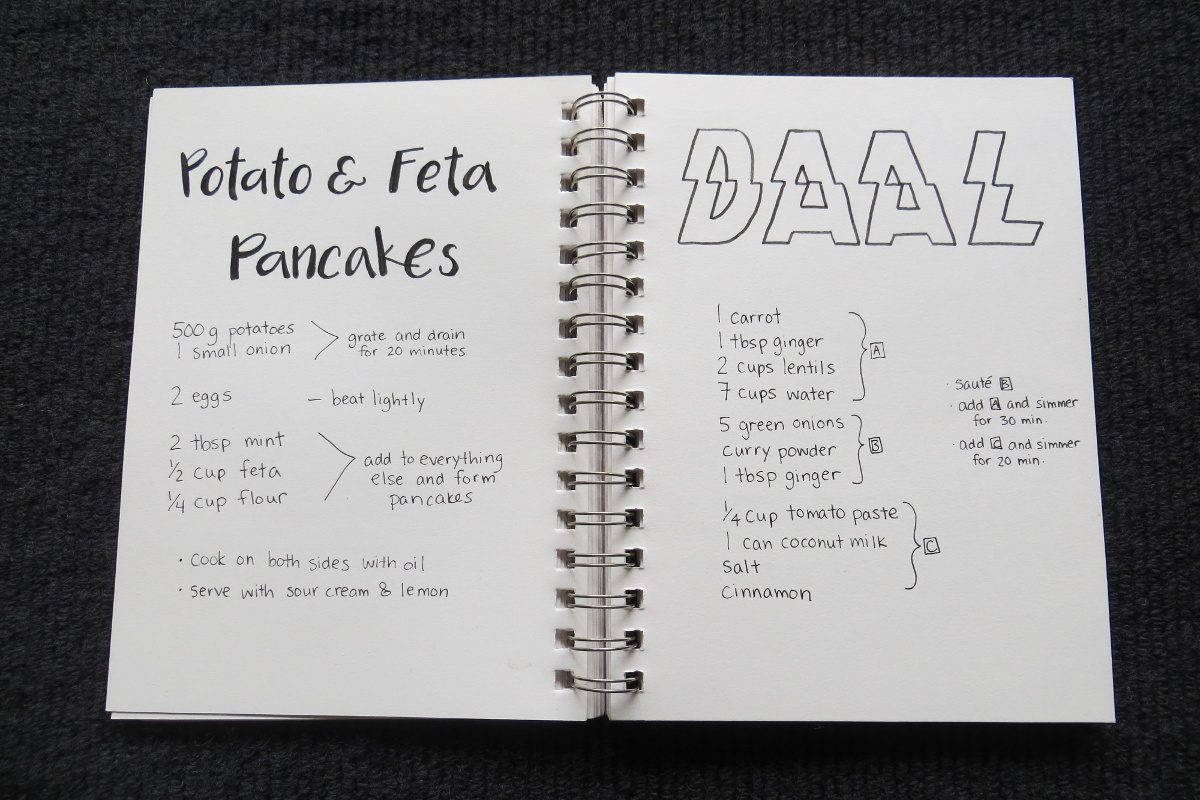 Potato & Feta
Pancakes
500g potatoes
1 small onion
grate and drain
for 20 minutes
2 eggs
– beat lightly
2 tbsp mint
1/2 cup feta
1/4 cup flour
add to everything
else and form
pancakes
· cook on both sides with oil
· serve with sour cream & lemon
DAAL
1 carrot
1 tbsp ginger
2 cups lentils
7 cups water
A
5 green onions
curry powder
1 tbsp ginger
B
1/4 cup tomato paste
1 can coconut milk
salt
cinnamon
C
· sauté B
· add A and simmer
for 30 min.
· add C and simmer
for 20 min.